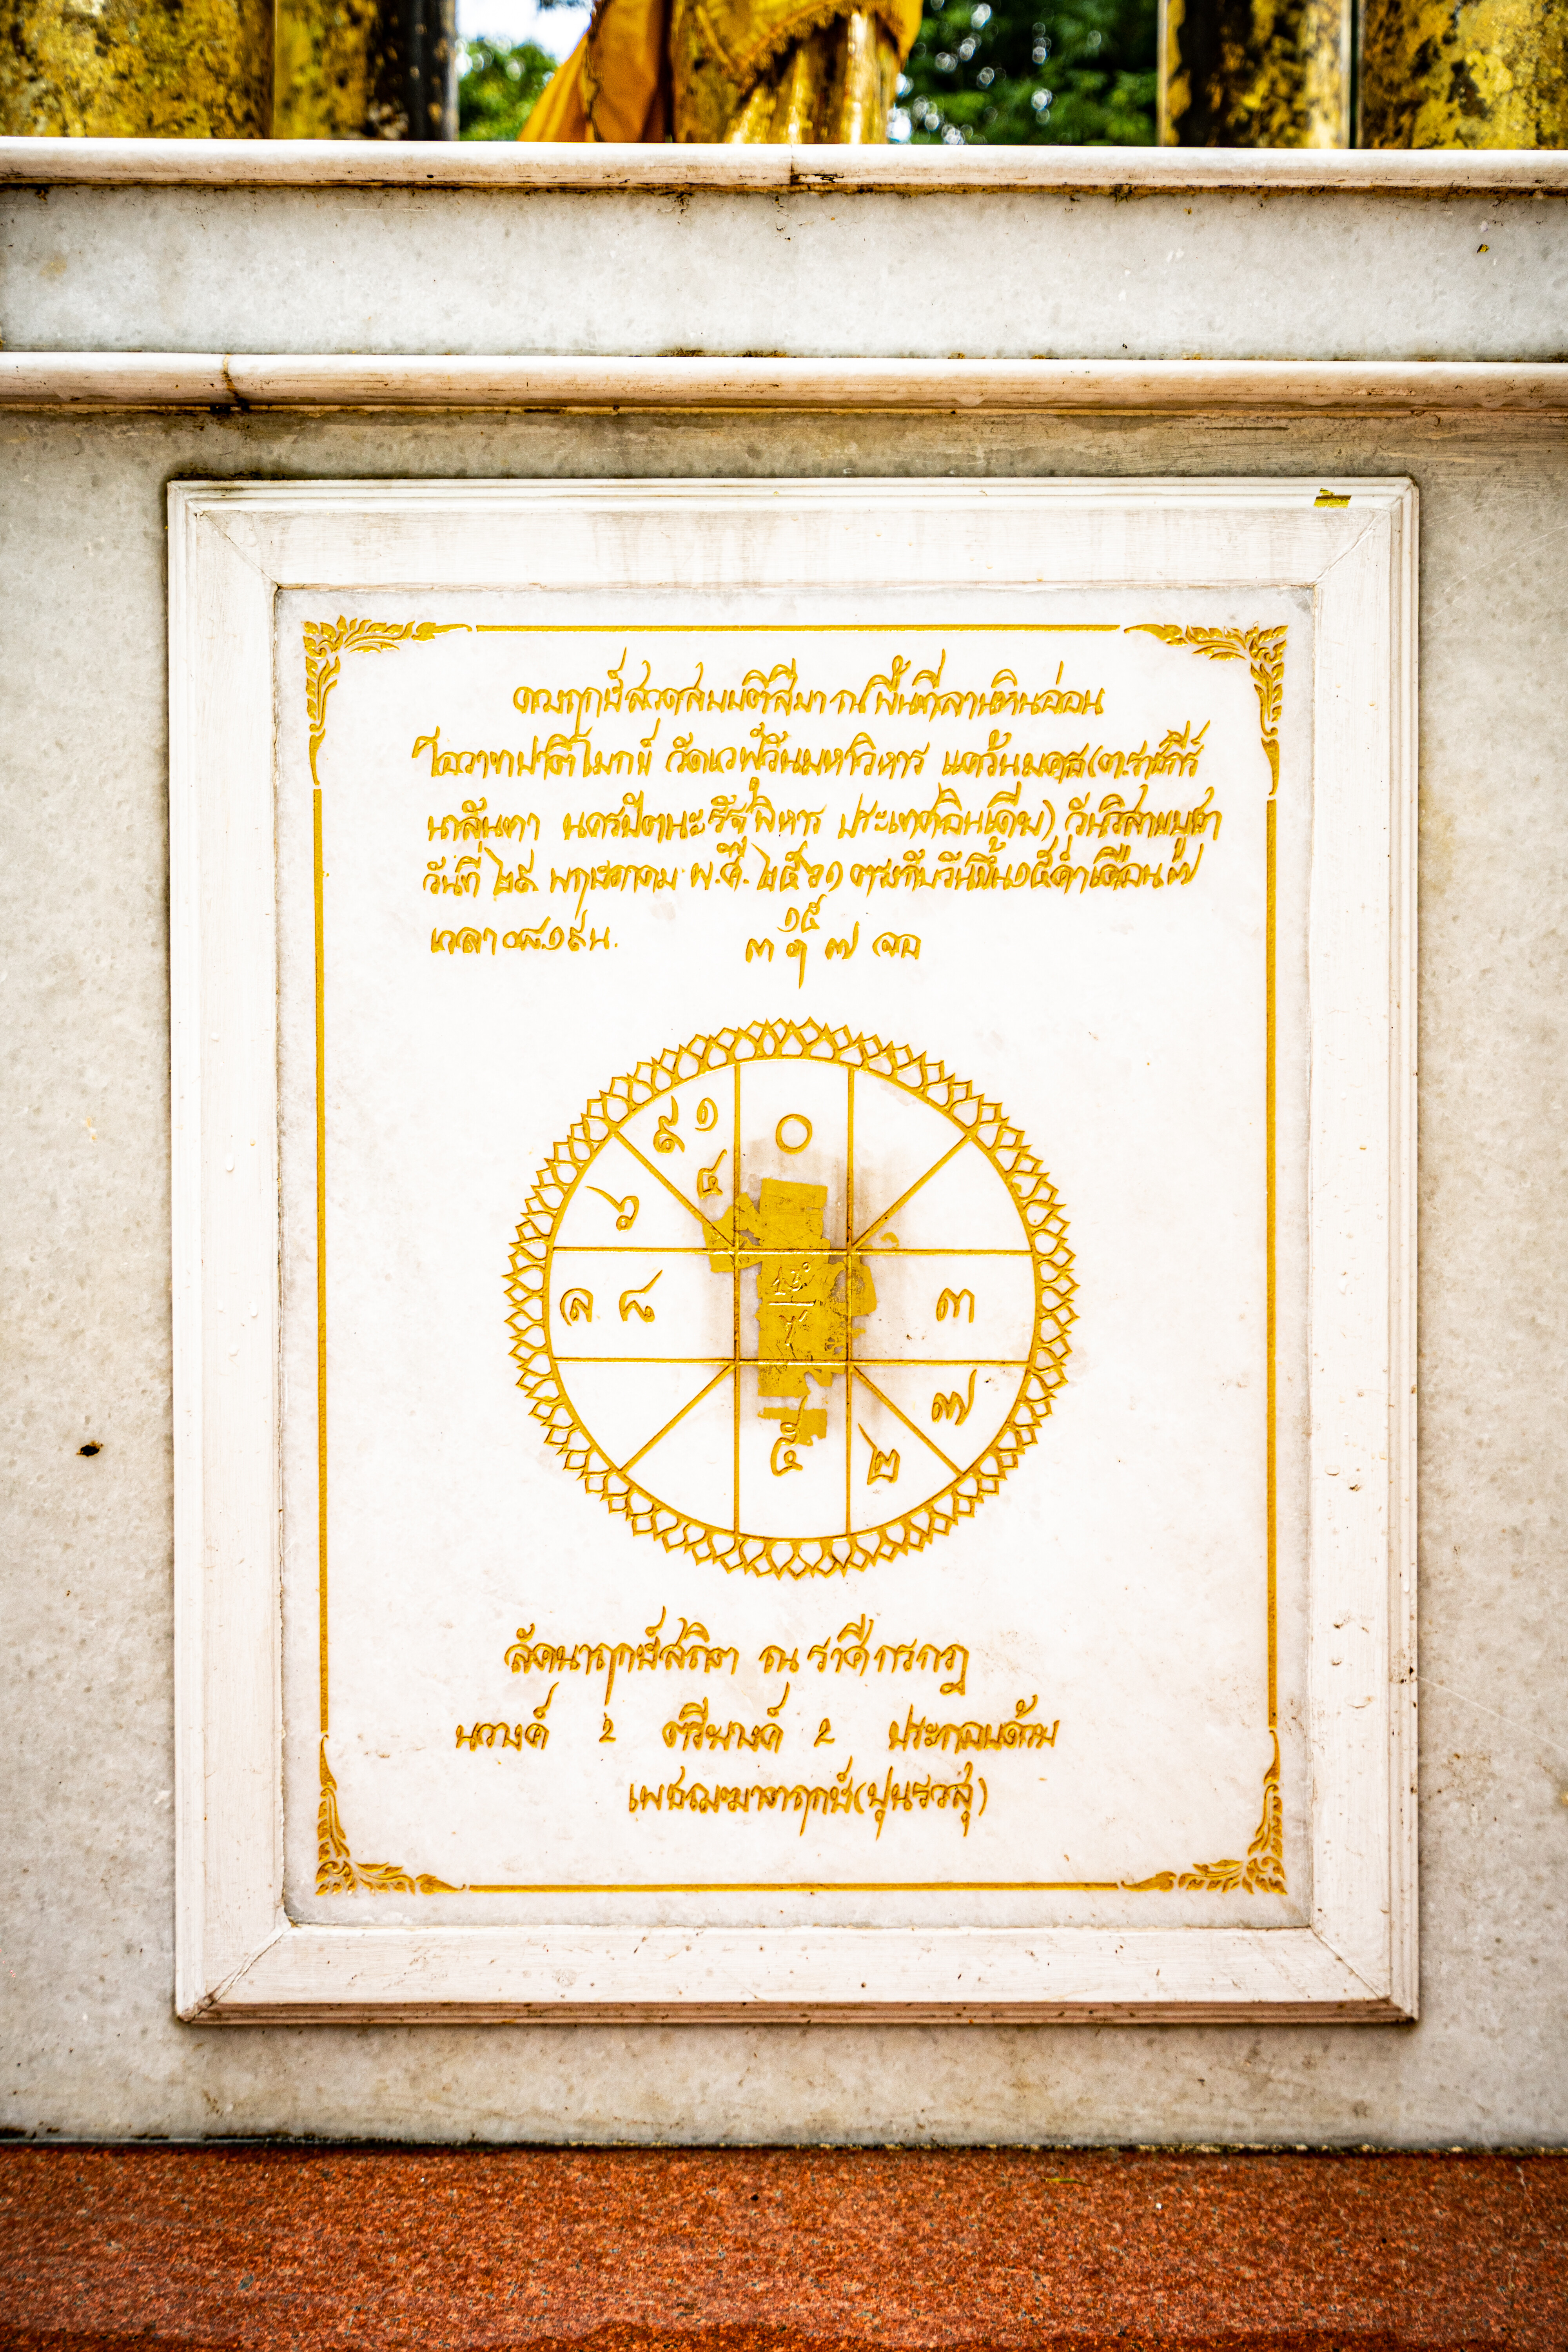 ดวงฤกษ์สวดสมมติสีมา ณ พื้นที่ลานหินอ่อน
โอวาทปาติโมกข์ วัดเวฬุวันมหาวิหาร แคว้นมคธ(ต.ราชคีร์
นาลันทา นครปัตนะ รัฐพิหาร ประเทศอินเดีย) วันวิสาขบูชา
วันที่ ๒๙ พฤษภาคม พ.ศ. ๒๕๖๑ ตรงกับวันขึ้น๑๕ค่ำเดือน๗
เวลา๐๘.๑๙น.
๑๕
๓ ฯ ๗ ออ
๙ ๑ ๐
๔
๖
ล ๘ ๓
๗
๕ ๒
ลัคนาฤกษ์สถิต ณ ราศีกรกฎ
นวางค์ 2 ตรียางค์ 2 ประกอบด้วย
เพชฌฆาตฤกษ์(ปุนรวสุ)